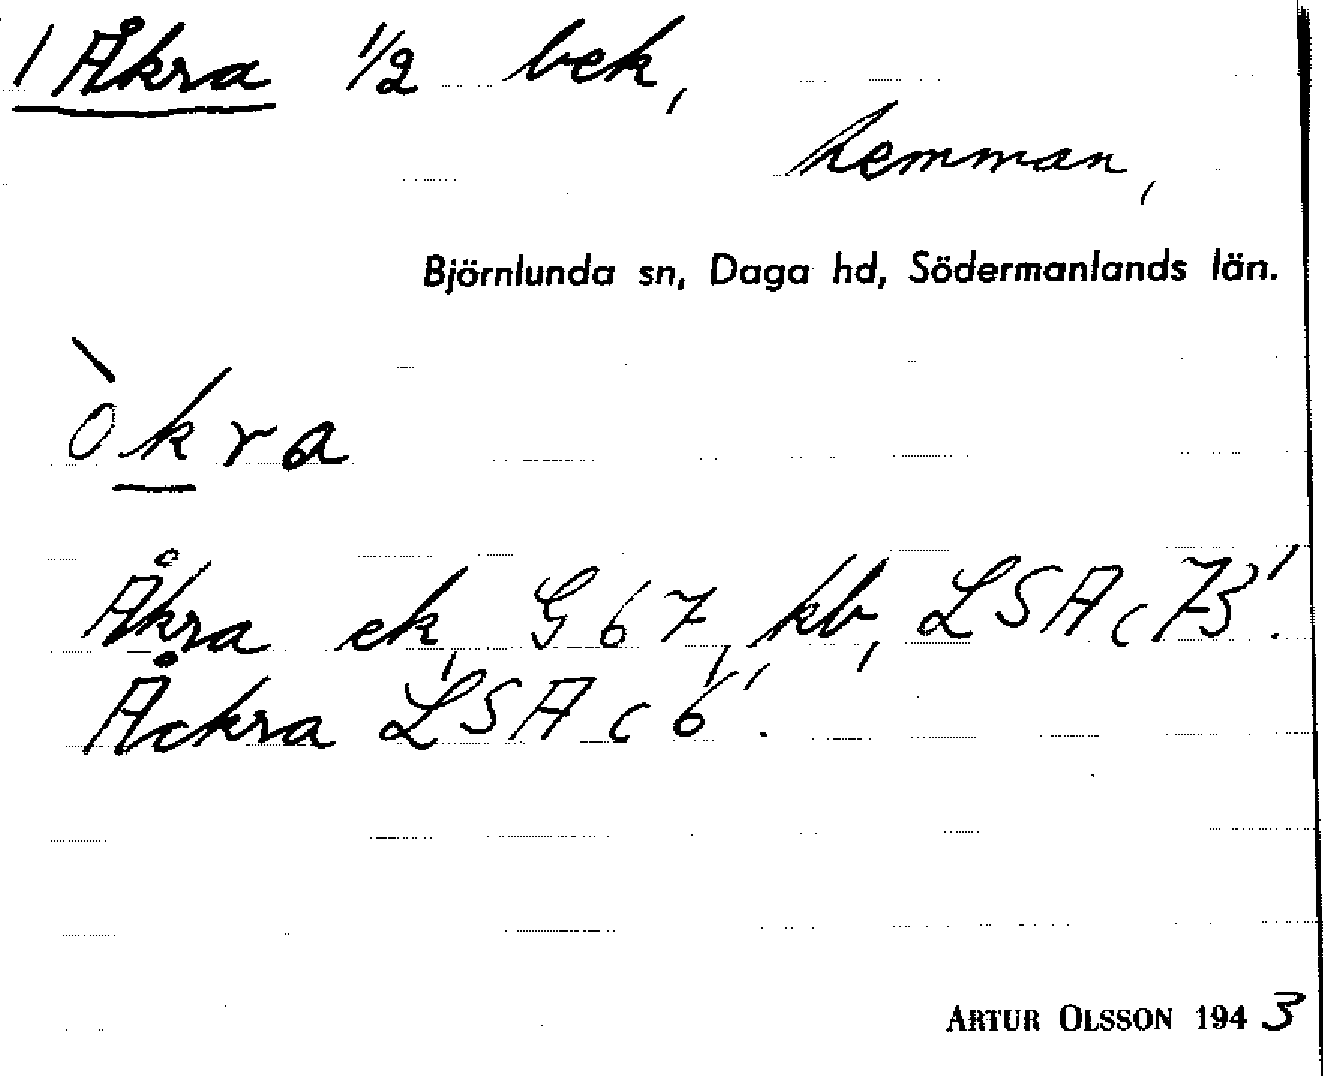 1 Åkra 1/2 bek,
hemman,
Björnlunda sn, Daga hd, Södermanlands län.
òkra
Åkra ek, G 67, kb, LSA c 73'.
Åckra LSA c 6'.
ARTUR OLSSON 1943